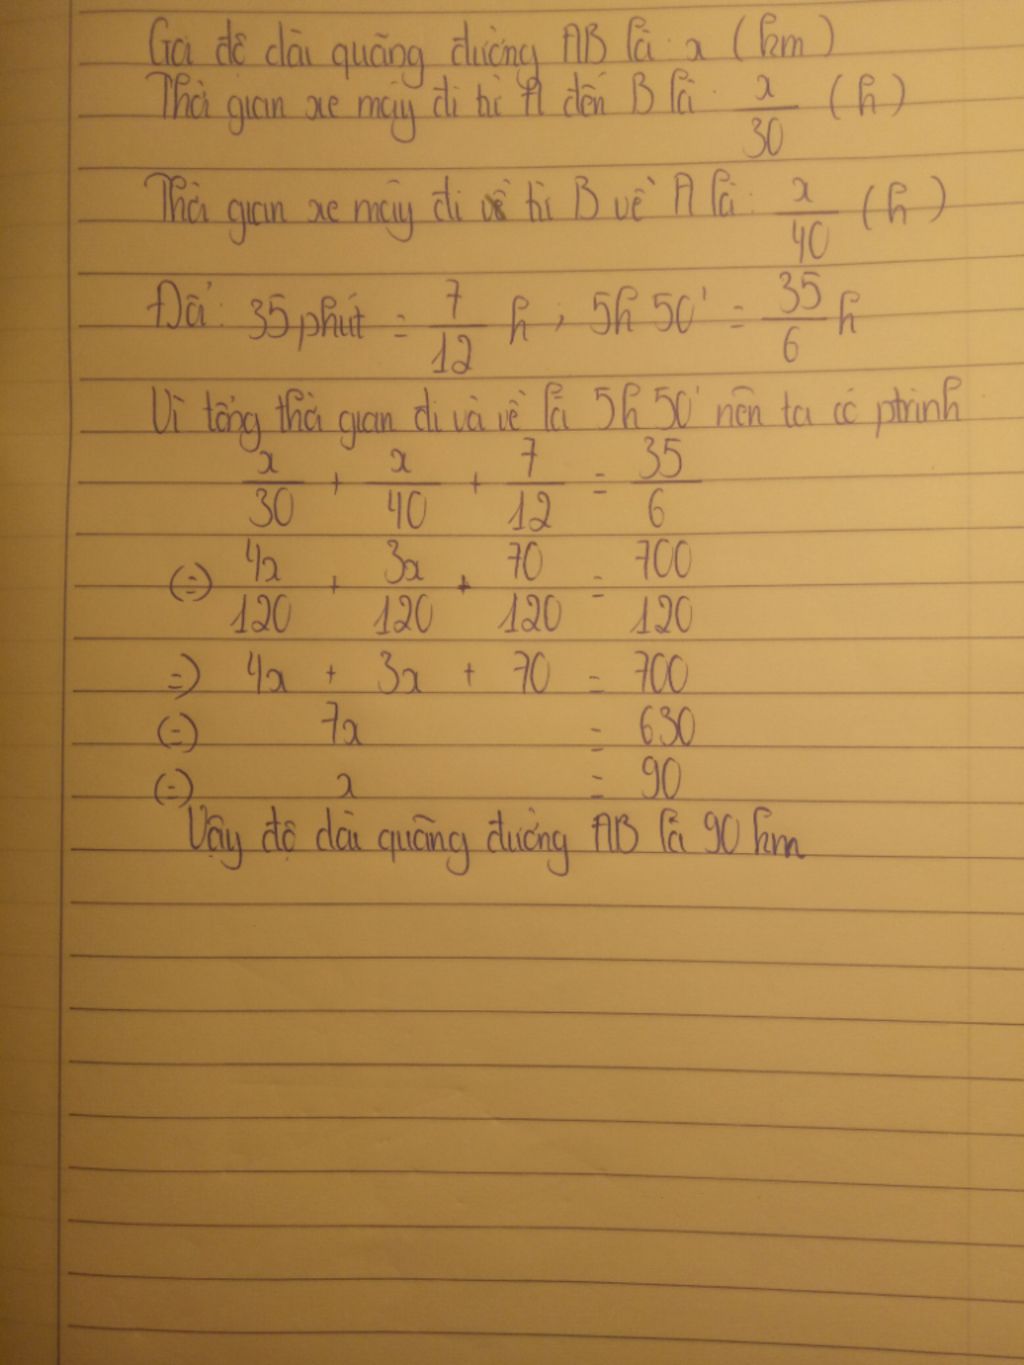 Gọi độ dài quãng đường AB là: x (km)
Thời gian xe máy đi từ A đến B là: x/30 (h)
Thời gian xe máy đi về từ B về A là: x/40 (h)
Đổi: 35 phút = 7/12 h, 5h 50' = 35/6 h
Vì tổng thời gian đi và về là 5h 50' nên ta có ptrình
x/30 + x/40 + 7/12 = 35/6
(=) 4x/120 + 3x/120 + 70/120 = 700/120
=) 4x + 3x + 70 = 700
(=) 7x = 630
(=) x = 90
Vậy độ dài quãng đường AB là 90 km